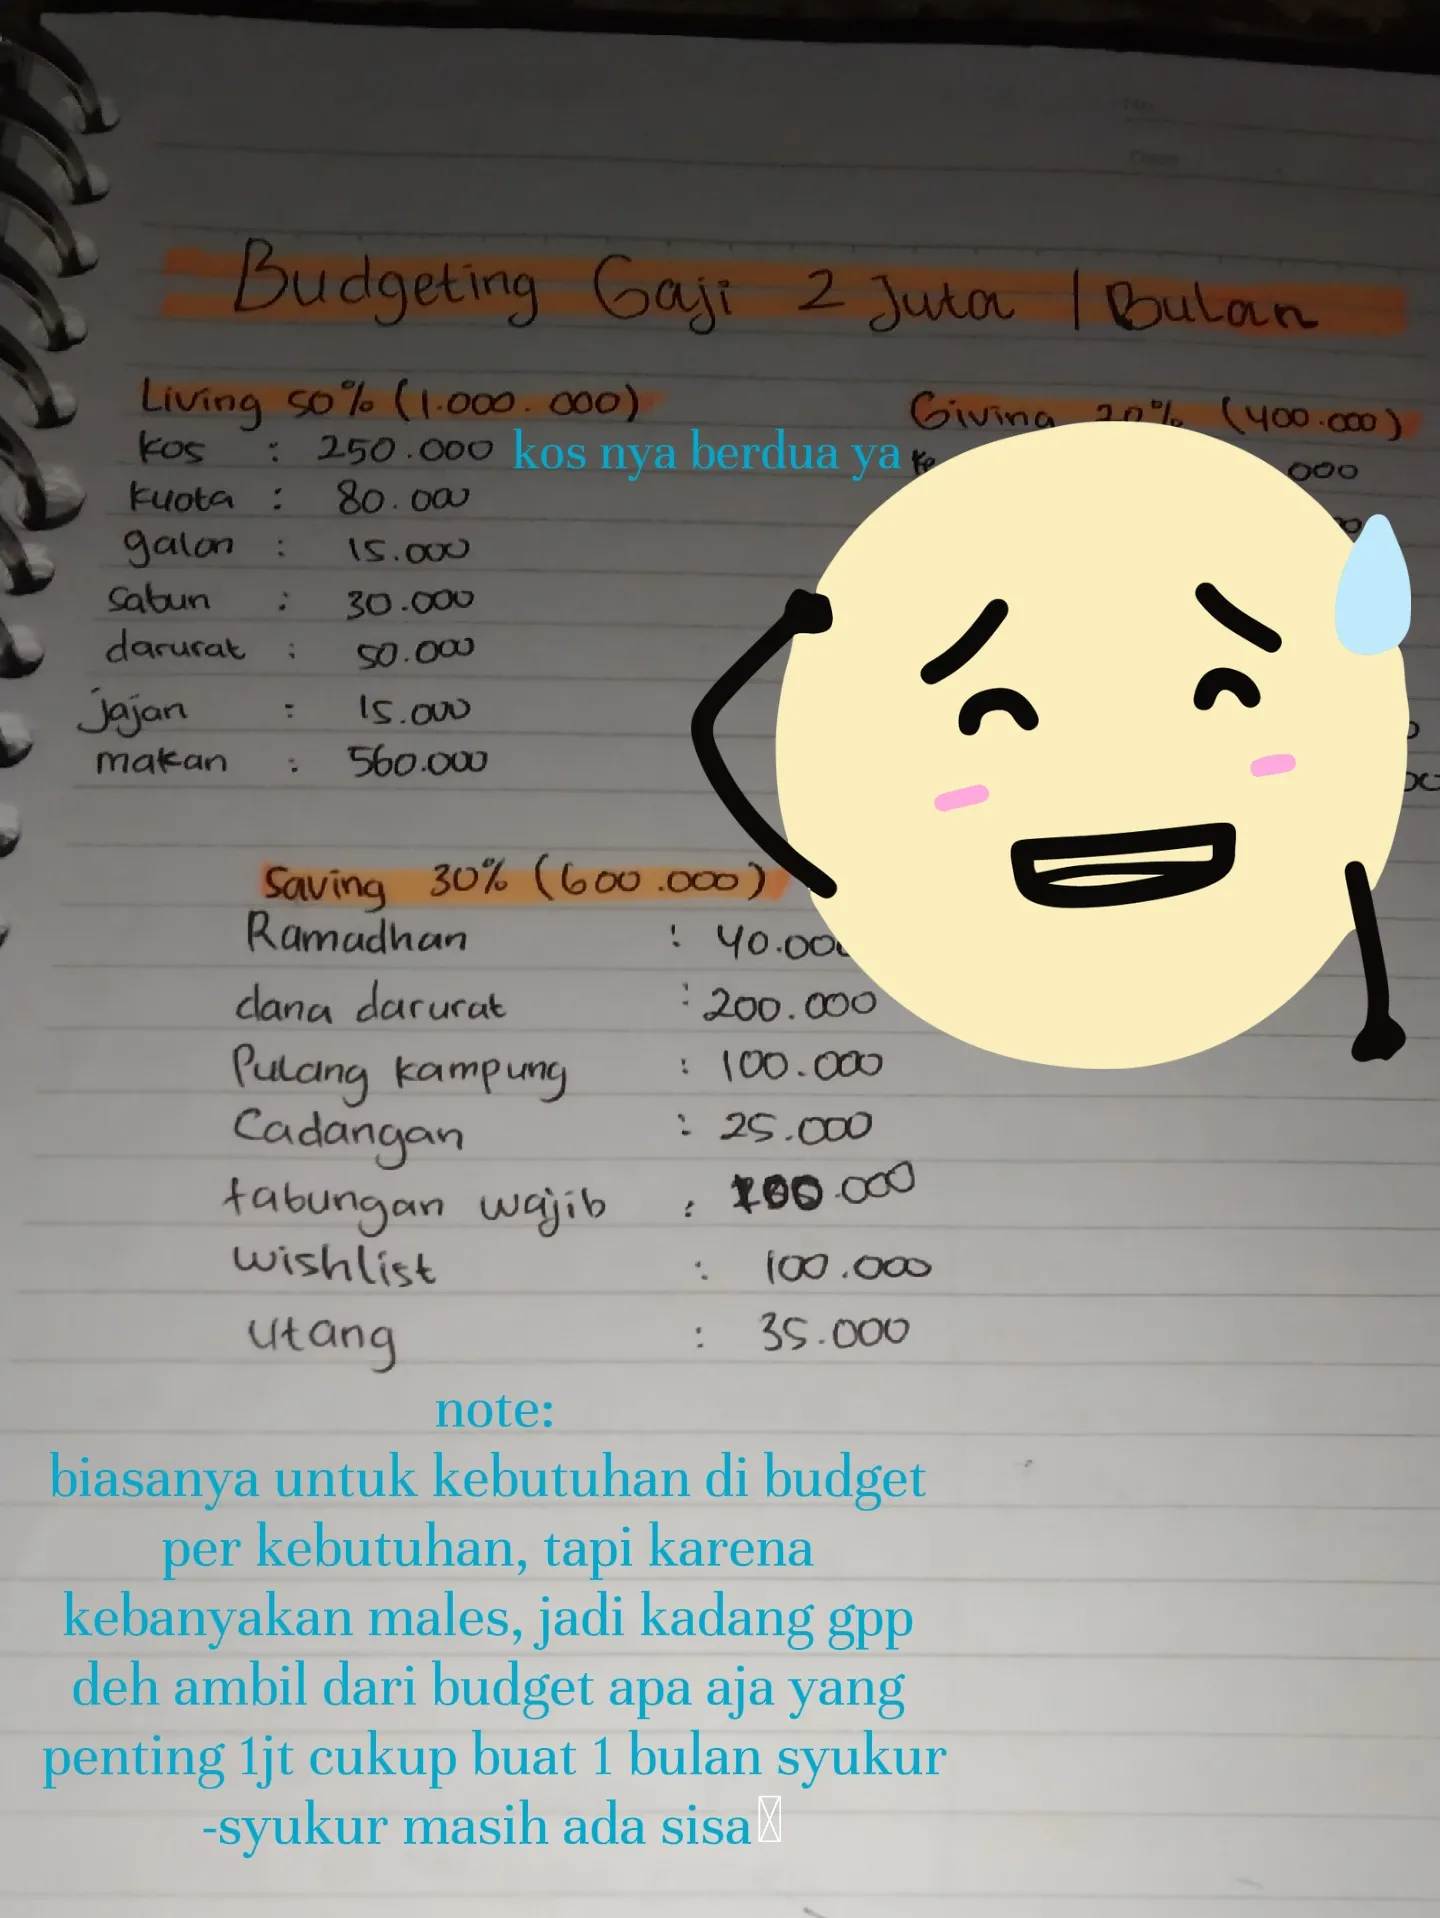 Budgeting Gaji 2 Juta / Bulan
Living 50% (1.000.000)
kos : 250.000 kos nya berdua ya
kuota : 80.000
galon : 15.000
sabun : 30.000
darurat : 50.000
jajan : 15.000
makan : 560.000
Giving 20% (400.000)
000
Saving 30% (600.000)
Ramadhan : 40.000
dana darurat : 200.000
Pulang kampung : 100.000
Cadangan : 25.000
tabungan wajib : 100.000
wishlist : 100.000
utang : 35.000
note:
biasanya untuk kebutuhan di budget
per kebutuhan, tapi karena
kebanyakan males, jadi kadang gpp
deh ambil dari budget apa aja yang
penting 1jt cukup buat 1 bulan syukur
-syukur masih ada sisa